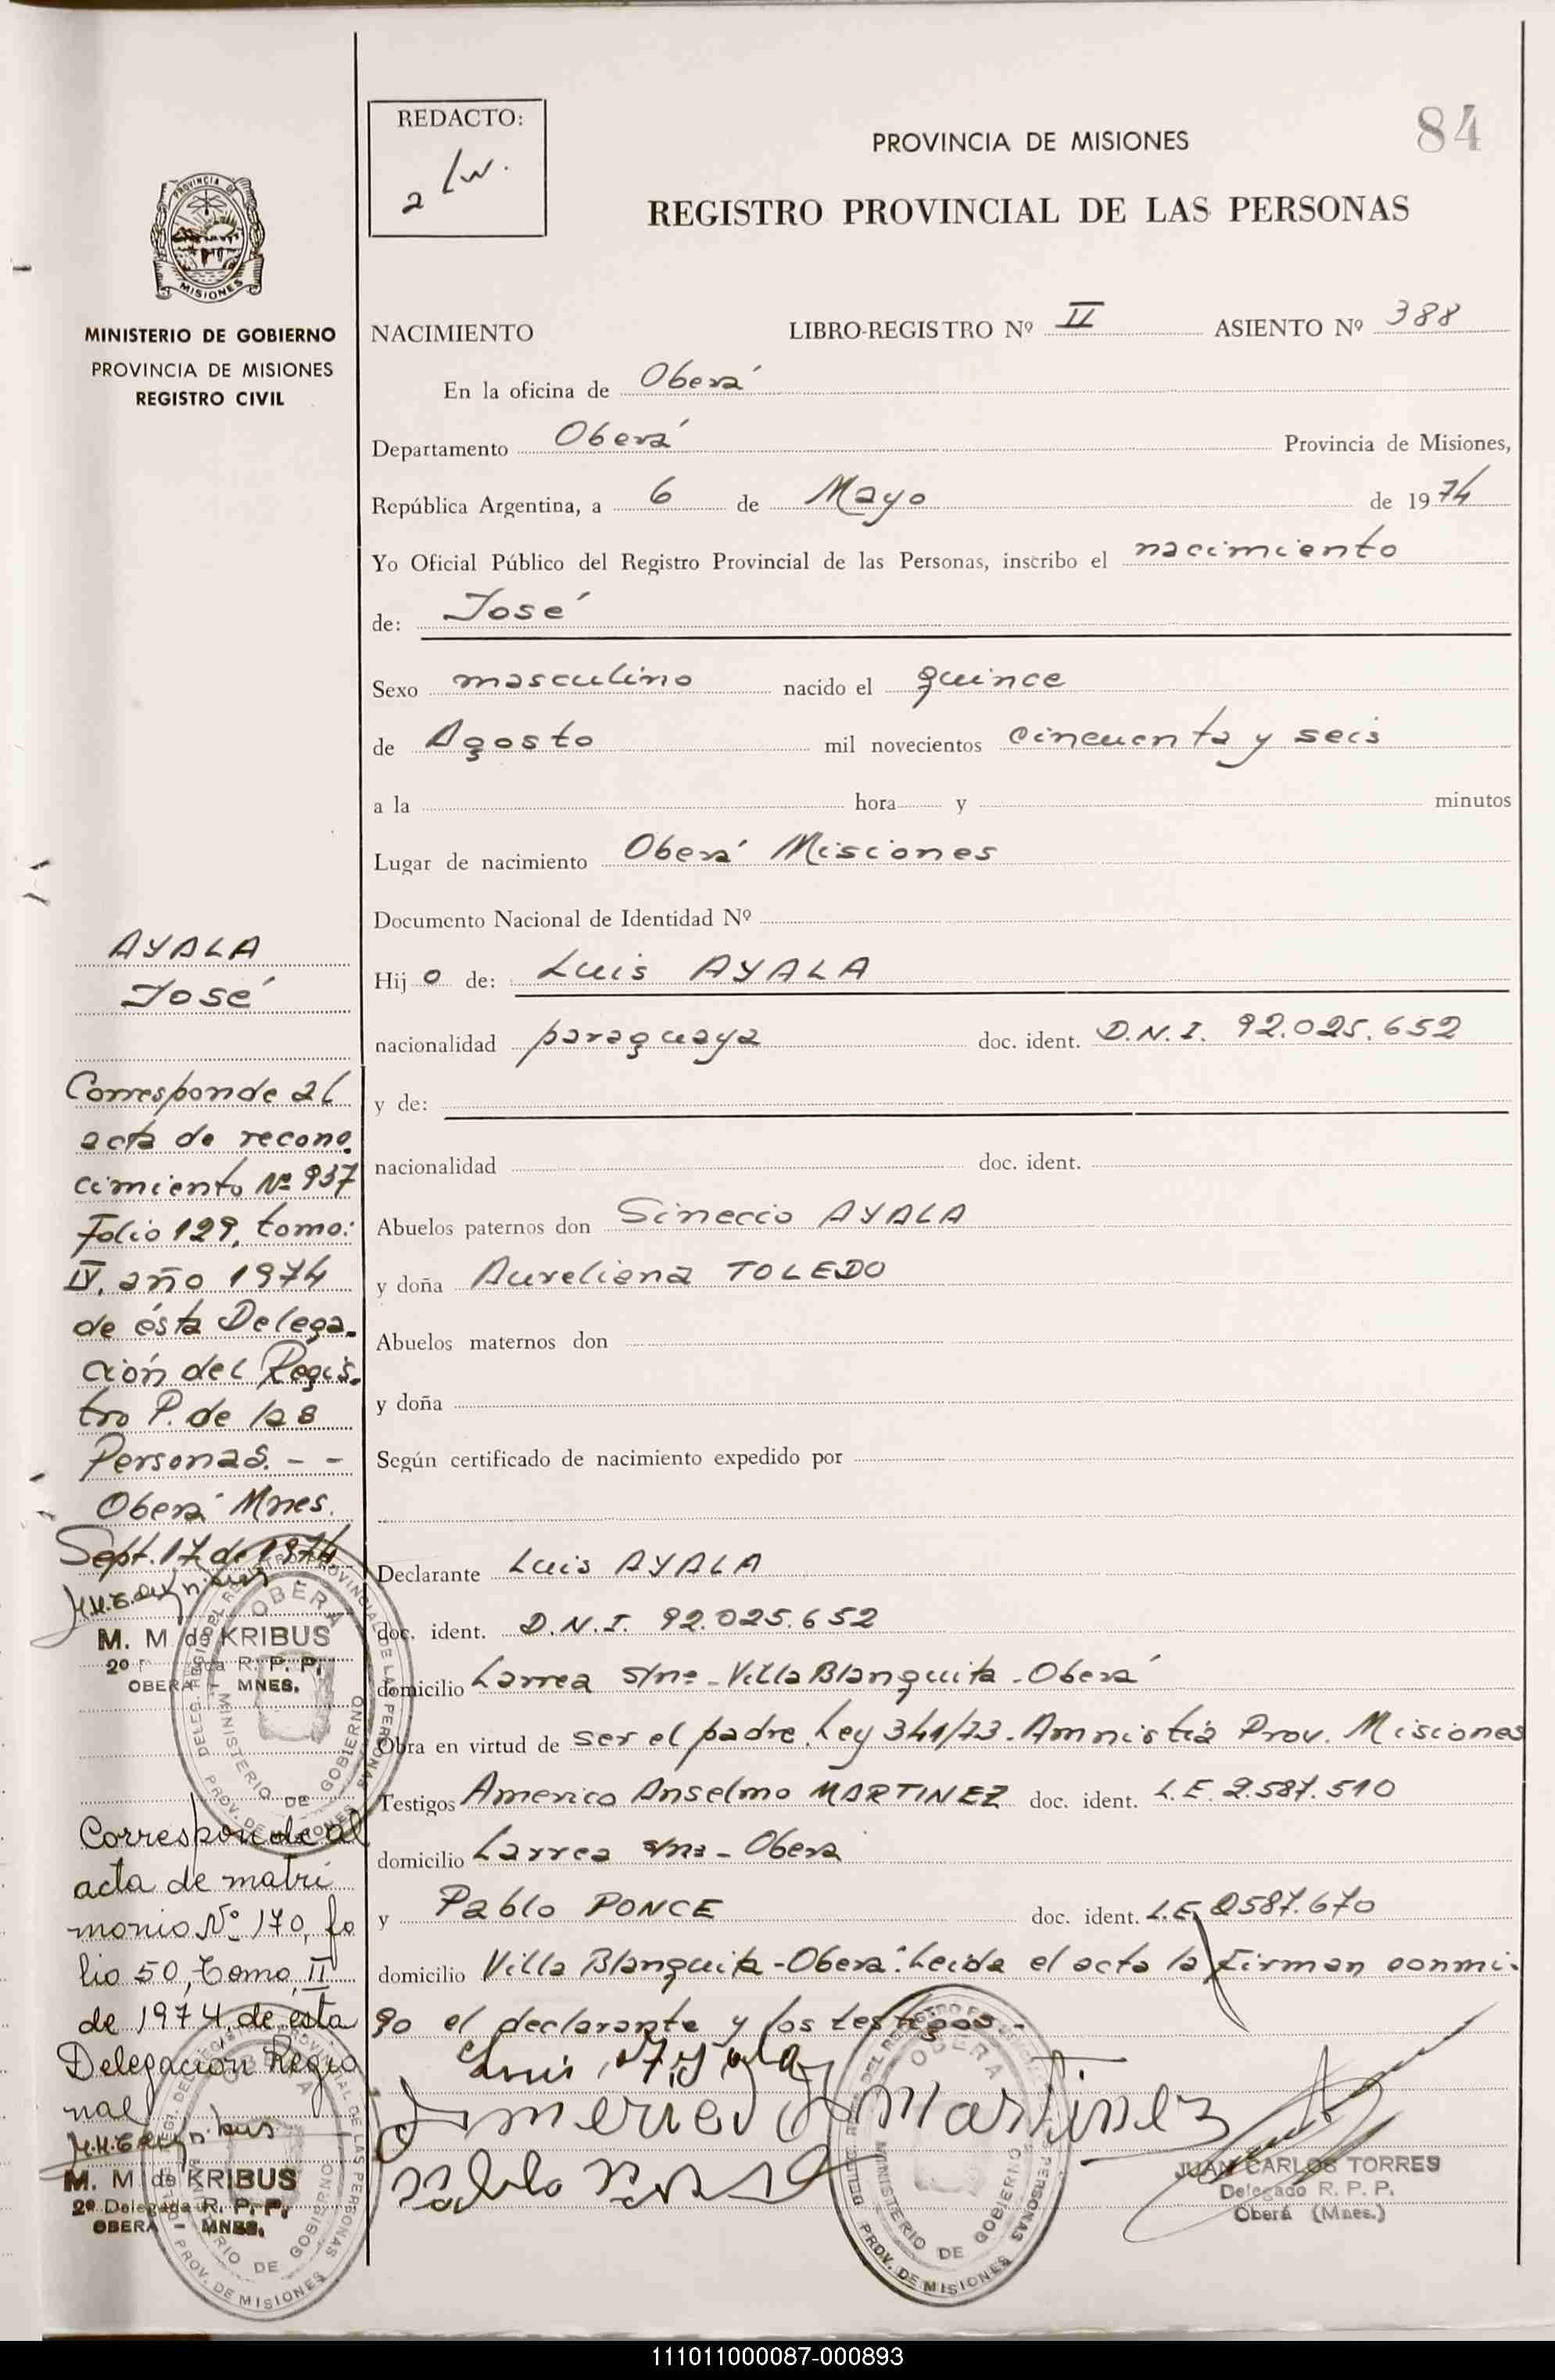 REDACTO:
84
PROVINCIA DE MISIONES
REGISTRO PROVINCIAL DE LAS PERSONAS
PROVINCIA DE
MISIONES
MINISTERIO DE GOBIERNO
PROVINCIA DE MISIONES
REGISTRO CIVIL
NACIMIENTO LIBRO-REGISTRO Nº II ASIENTO Nº 388
En la oficina de Oberá
Departamento Oberá Provincia de Misiones,
República Argentina, a 6 de Mayo de 1974
Yo Oficial Público del Registro Provincial de las Personas, inscribo el nacimiento
de: José
Sexo masculino nacido el quince
de Agosto mil novecientos cincuenta y seis
a la hora y minutos
Lugar de nacimiento Oberá Misiones
Documento Nacional de Identidad Nº
Hijo de: Luis AYALA
nacionalidad paraguaya doc. ident. D.N.I. 92.025.652
y de:
nacionalidad doc. ident.
Abuelos paternos don Sinecio AYALA
y doña Aureliana TOLEDO
Abuelos maternos don
y doña
Según certificado de nacimiento expedido por
Declarante Luis AYALA
doc. ident. D.N.I. 92.025.652
domicilio Larrea s/nº - Villa Blanquita - Oberá
Obra en virtud de ser el padre. Ley 341/73. Amnistia Prov. Misiones
Testigos Americo Anselmo MARTINEZ doc. ident. L.E. 2.587.510
domicilio Larrea s/nº - Oberá
y Pablo PONCE doc. ident. L.E. 2587.670
domicilio Villa Blanquita - Oberá. Leida el acta la firman conmi-
go el declarante y los testigos -
Luis Ayala
Americo A Martinez
Pablo
JUAN CARLOS TORRES
Delegado R. P. P.
Oberá (Mnes.)
AYALA
José
Corresponde al
acta de recono
cimiento Nº 937
Folio 129, tomo:
IV, año 1974
de ésta Delega-
ción del Regis-
tro P. de las
Personas. - -
Oberá Mnes.
Sept. 17 de 1974
M. M. de KRIBUS
2º R. P. P.
OBERA MNES.
Corresponde al
acta de matri
monio Nº 170, fo
lio 50, Tomo, II
de 1974, de esta
Delegación Regio
nal
M. M. de KRIBUS
2º Delegada R. P. P.
OBERA - MNES.
OBERA
MINISTERIO DE GOBIERNO
PROV. DE MISIONES
OBERA
MINISTERIO DE GOBIERNO
PROV. DE MISIONES
OBERA
MINISTERIO DE GOBIERNO
PROV. DE MISIONES
111011000087-000893